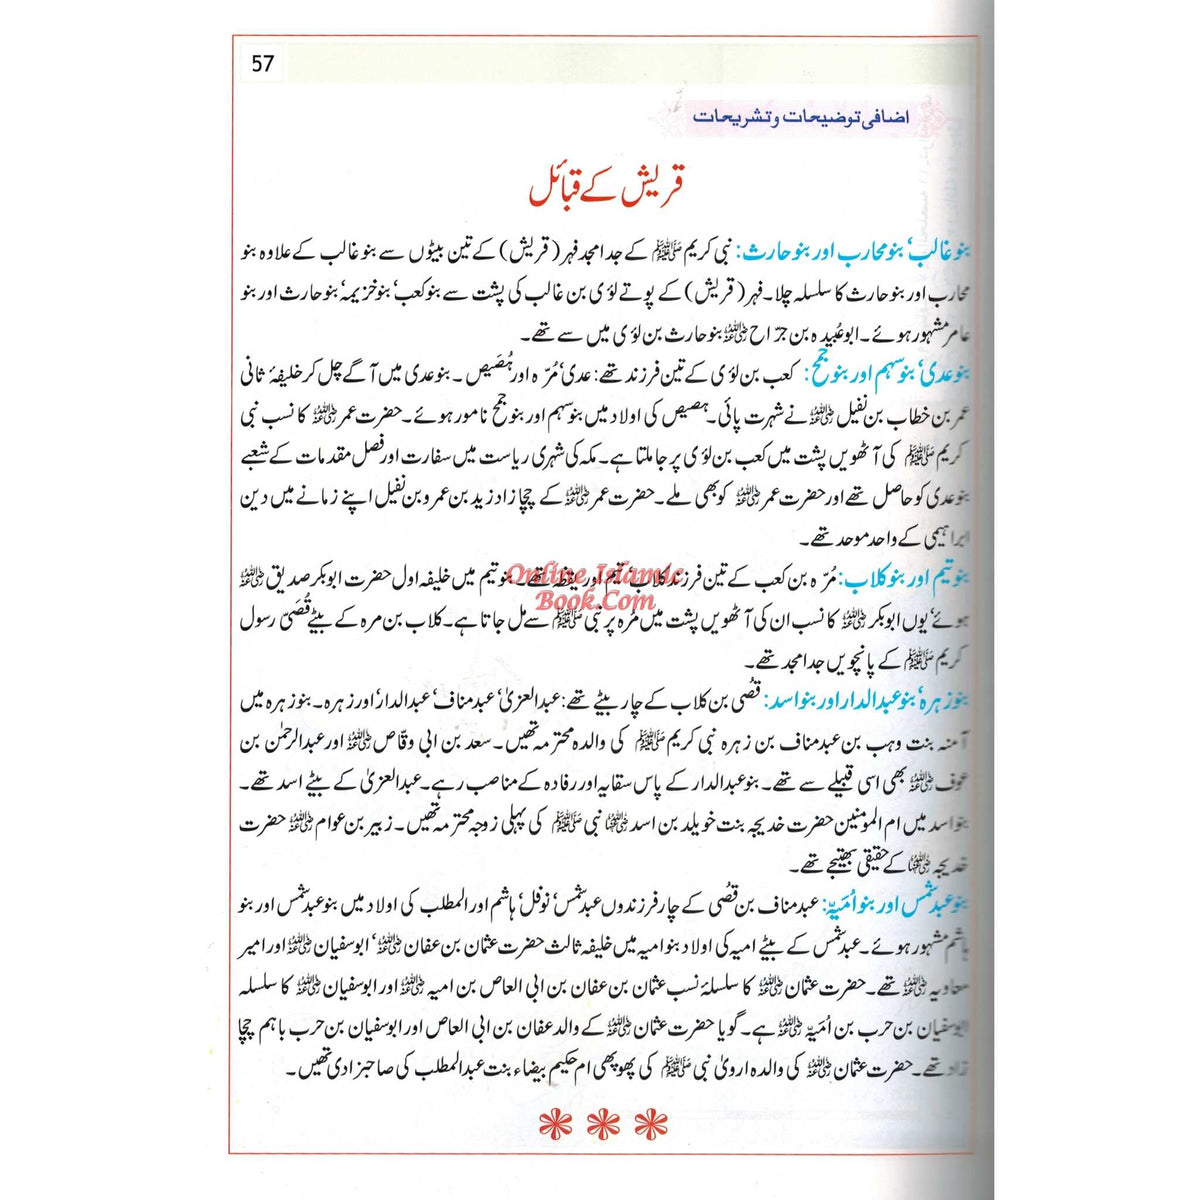 57
اضافی توضیحات و تشریحات
قریش کے قبائل
بنو غالب‘ بنو محارب اور بنو حارث: نبی کریم ﷺ کے جد امجد فہر (قریش) کے تین بیٹوں سے بنو غالب کے علاوہ بنو
محارب اور بنو حارث کا سلسلہ چلا۔ فہر (قریش) کے پوتے لؤی بن غالب کی پشت سے بنو کعب‘ بنو خزیمہ‘ بنو حارث اور بنو
عامر مشہور ہوئے۔ ابو عُبیدہ بن جرّاح رضی اللہ عنہ بنو حارث بن لؤی میں سے تھے۔
بنو عدی‘ بنو سہم اور بنو جمح: کعب بن لؤی کے تین فرزند تھے: عدی‘ مُرّہ اور ہُصَیص۔ بنو عدی میں آگے چل کر خلیفۂ ثانی
عمر بن خطاب بن نفیل رضی اللہ عنہ نے شہرت پائی۔ ہصیص کی اولاد میں بنو سہم اور بنو جمح نامور ہوئے۔ حضرت عمر رضی اللہ عنہ کا نسب نبی
کریم ﷺ کی آٹھویں پشت میں کعب بن لؤی پر جا ملتا ہے۔ مکہ کی شہری ریاست میں سفارت اور فصل مقدمات کے شعبے
بنو عدی کو حاصل تھے اور حضرت عمر رضی اللہ عنہ کو بھی ملے۔ حضرت عمر رضی اللہ عنہ کے چچا زاد زید بن عمرو بن نفیل اپنے زمانے میں دین
ابراہیمی کے واحد موحد تھے۔
بنو تیم اور بنو کلاب: مُرّہ بن کعب کے تین فرزند کلاب‘ تیم اور یقظہ تھے۔ بنو تیم میں خلیفہ اول حضرت ابوبکر صدیق رضی اللہ عنہ
ہوئے‘ یوں ابوبکر رضی اللہ عنہ کا نسب ان کی آٹھویں پشت میں مُرہ پر نبی ﷺ سے مل جاتا ہے۔ کلاب بن مرہ کے بیٹے قُصَیّ رسول
کریم ﷺ کے پانچویں جد امجد تھے۔
بنو زہرہ‘ بنو عبدالدار اور بنو اسد: قُصی بن کلاب کے چار بیٹے تھے: عبدالعزیٰ‘ عبد مناف‘ عبدالدار‘ اور زہرہ۔ بنو زہرہ میں
آمنہ بنت وہب بن عبد مناف بن زہرہ نبی کریم ﷺ کی والدہ محترمہ تھیں۔ سعد بن ابی وقاص رضی اللہ عنہ اور عبدالرحمٰن بن
عوف رضی اللہ عنہ بھی اسی قبیلے سے تھے۔ بنو عبدالدار کے پاس سقایہ اور رفادہ کے مناصب رہے۔ عبدالعزیٰ کے بیٹے اسد تھے۔
بنو اسد میں ام المومنین حضرت خدیجہ بنت خویلد بن اسد رضی اللہ عنہا نبی ﷺ کی پہلی زوجہ محترمہ تھیں۔ زبیر بن عوام رضی اللہ عنہ حضرت
خدیجہ رضی اللہ عنہا کے حقیقی بھتیجے تھے۔
بنو عبد شمس اور بنو اُمَیّہ: عبد مناف بن قصی کے چار فرزندوں عبد شمس‘ نوفل‘ ہاشم اور المطلب کی اولاد میں بنو عبد شمس اور بنو
ہاشم مشہور ہوئے۔ عبد شمس کے بیٹے امیہ کی اولاد بنو امیہ میں خلیفہ ثالث حضرت عثمان بن عفان رضی اللہ عنہ‘ ابو سفیان رضی اللہ عنہ اور امیر
معاویہ رضی اللہ عنہ تھے۔ حضرت عثمان رضی اللہ عنہ کا سلسلۂ نسب عثمان بن عفان بن ابی العاص بن امیہ رضی اللہ عنہ اور ابو سفیان رضی اللہ عنہ کا سلسلہ
ابو سفیان بن حرب بن اُمَیّہ رضی اللہ عنہ ہے۔ گویا حضرت عثمان رضی اللہ عنہ کے والد عفان بن ابی العاص اور ابو سفیان بن حرب باہم چچا
زاد تھے۔ حضرت عثمان رضی اللہ عنہ کی والدہ ارویٰ نبی ﷺ کی پھوپھی ام حکیم بیضاء بنت عبدالمطلب کی صاحبزادی تھیں۔
Online Islamic
Book.Com